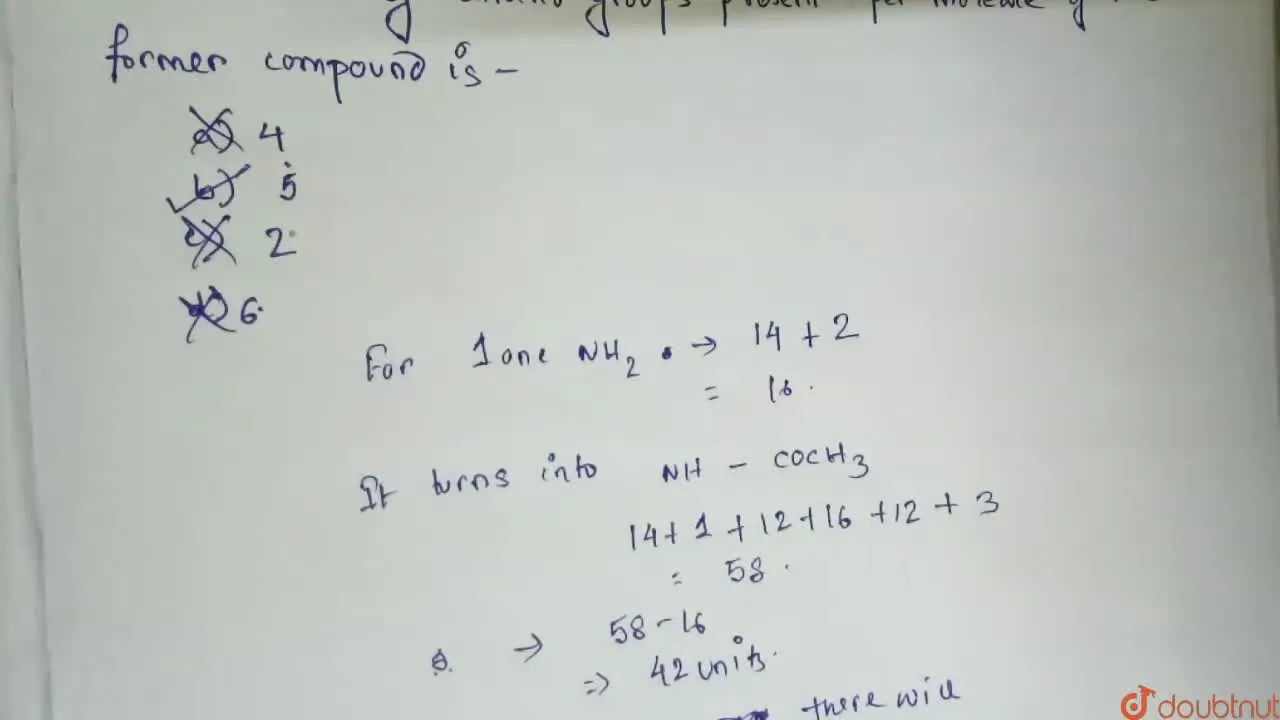 groups present per molecule
former compound is -
a) 4
b) 5
c) 2
d) 6.
For 1 one NH2 . → 14 + 2
= 16.
It turns into NH - COCH3
14 + 1 + 12 + 16 + 12 + 3
= 58.
→ 58 - 16
⇒ 42 units.
there will
doubtnut